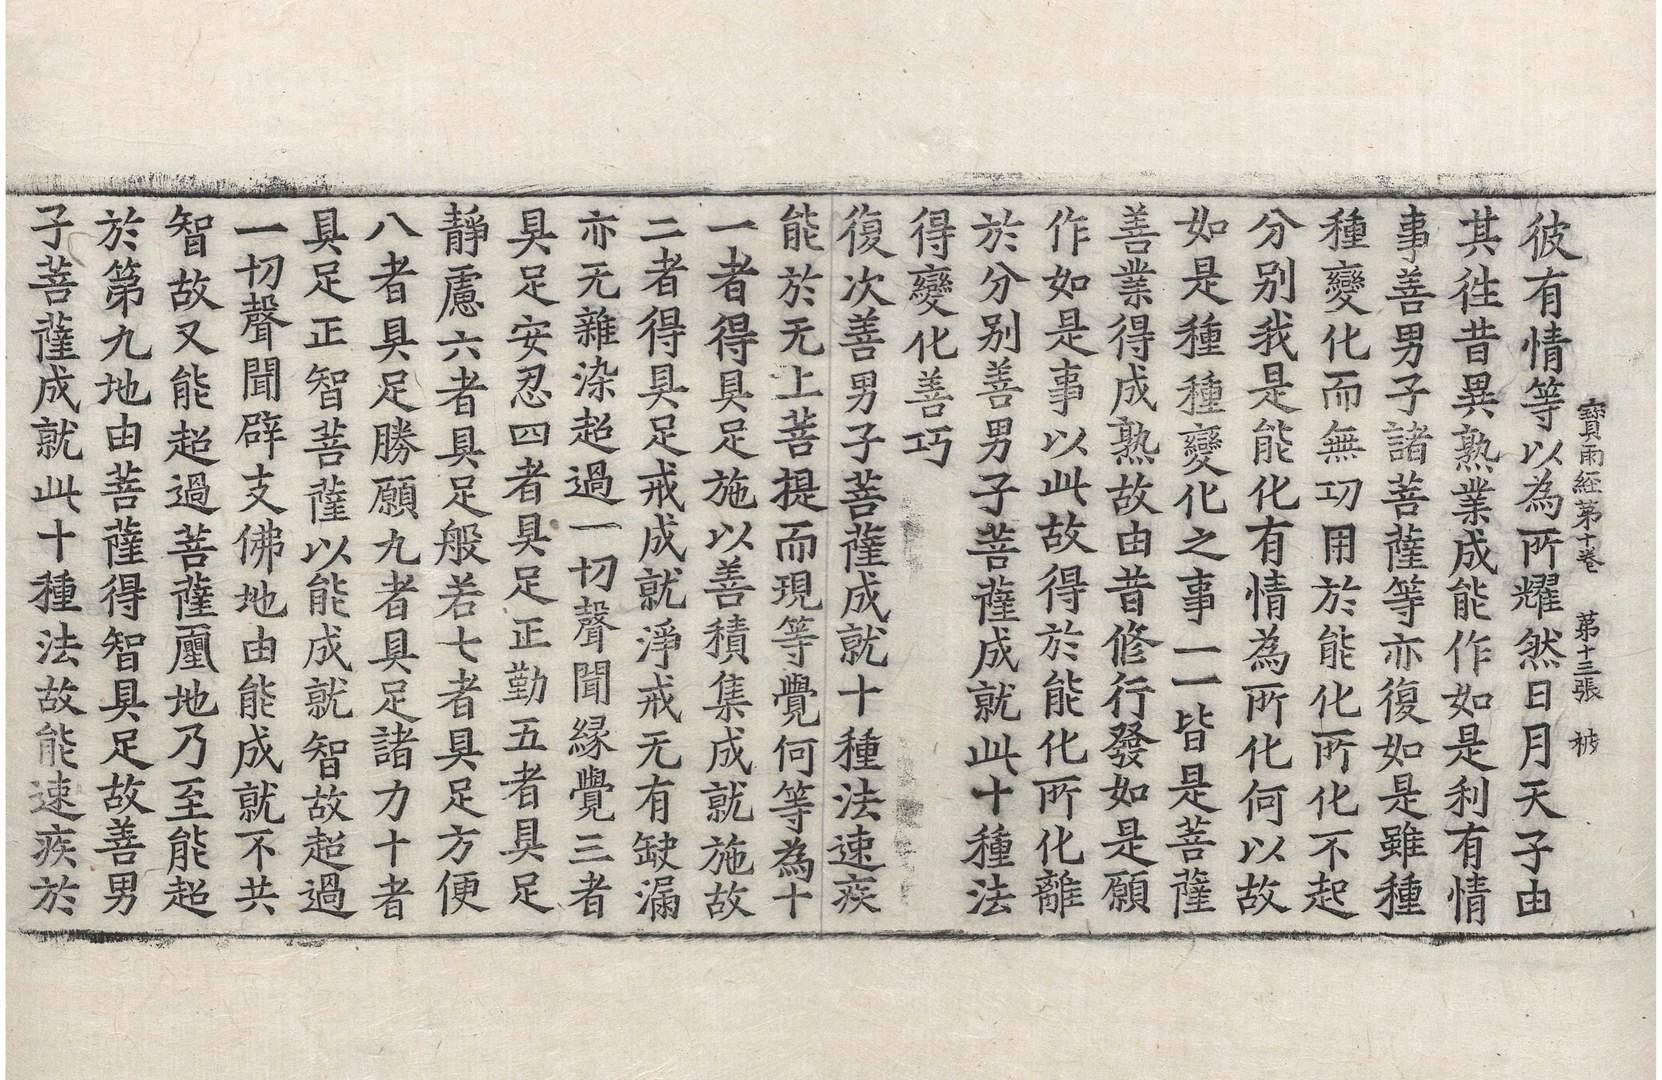 寶雨經第十卷　第十三張　被
彼有情等以為所耀然日月天子由
其往昔異熟業成能作如是利有情
事善男子諸菩薩等亦復如是雖種
種變化而無功用於能化所化不起
分别我是能化有情為所化何以故
如是種種變化之事一一皆是菩薩
善業得成熟故由昔修行發如是願
作如是事以此故得於能化所化離
於分别善男子菩薩成就此十種法
得變化善巧
復次善男子菩薩成就十種法速疾
能於无上菩提而現等覺何等為十
一者得具足施以善積集成就施故
二者得具足戒成就淨戒无有缺漏
亦无雜染超過一切聲聞緣覺三者
具足安忍四者具足正勤五者具足
靜慮六者具足般若七者具足方便
八者具足勝願九者具足諸力十者
具足正智菩薩以能成就智故超過
一切聲聞辟支佛地由能成就不共
智故又能超過菩薩𠪨地乃至能超
於第九地由菩薩得智具足故善男
子菩薩成就此十種法故能速疾於